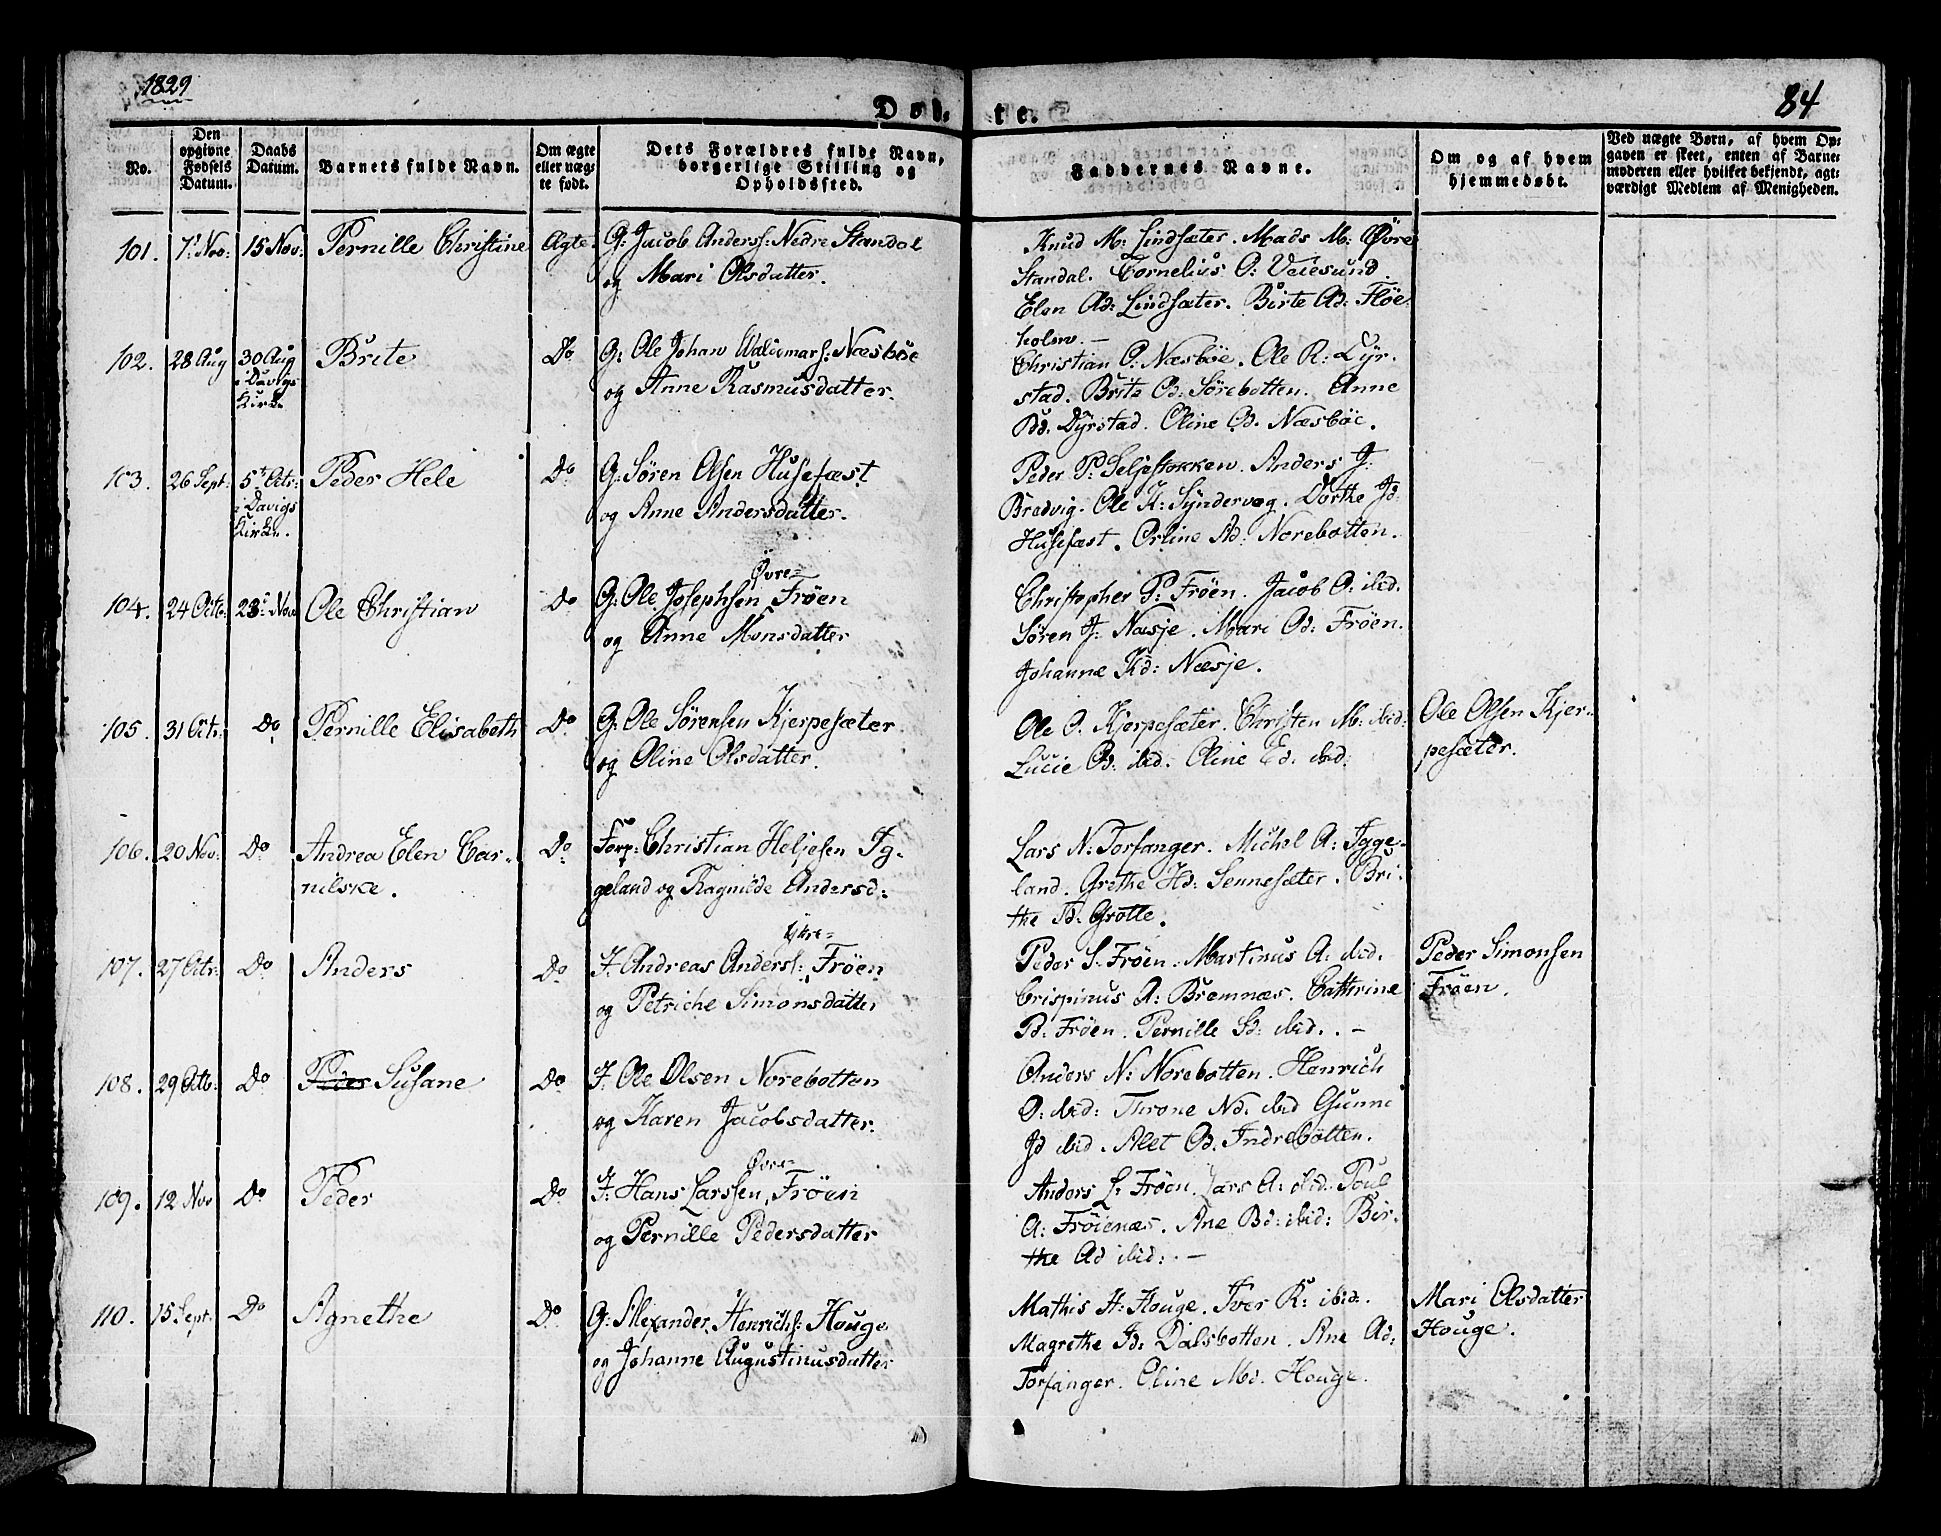 1829
84
Døb- te.
No.
Den opgivne Fødsels Datum.
Daabs Datum.
Barnets fulde Navn.
Om ægte eller uægte født.
Dets Forældres fulde Navn, borgerlige Stilling og Opholdssted.
Faddernes Navne.
Om og af hvem hjemmedøbt.
Ved uægte Børn, af hvem Opgaven er skeet, enten af Barnemoderen eller hvilket bekjendt, agtværdigt Medlem af Menigheden.
101. 7' Nov: 15 Nov: Pernille Christine Ægte. G: Jacob Anderss: Nedre Standal
og Mari Olsdatter.
Knud M: Lindsæter. Mads M: Øvre
Standal. Cornelius O: Veiesund.
Elen Ad: Lindsæter. Birte Ad: Fløe
holm. —
102. 28 Aug 30 Aug i Davigs Kirke Brite Do G: Ole Johan Waldemars: Næsbøe
og Anne Rasmusdatter.
Christian O: Næsbøe. Ole R: Dyr-
stad. Brite Od. Sørebotten. Anne
Dyrstad. Oline Od. Næsbøe.
103. 26 Sept: 5te Octr: i Davigs Kirke. Peder Hele Do G: Søren Olsen Husefæst
og Anne Andersdatter.
Peder P: Seljestokken. Anders J:
Bradvig. Ole K: Syndervog. Dorthe Jd:
Husefæst. Orline Ad: Norebotten.
104. 24 Octb: 23 Nov Ole Christian Do G: Ole Josephsen Øvre- Frøen
og Anne Monsdatter
Christopher P: Frøen. Jacob O: ibid.
Søren J: Næsje. Mari Od: Frøen.
Johanne Kd: Næsje.
105. 31 Octr: Do Pernille Elisabeth Do G: Ole Sørensen Kjerpesæter
og Oline Olsdatter.
Ole O. Kjerpesæter. Christen M: ibid:
Lucie Od: ibid. Oline Ed. ibid.
Ole Olsen Kjer-
pesæter.
106. 20 Nov: Do Andrea Elen Car-
nilske. Do Forp: Christian Heljesen Ig-
geland og Ragnilde Andersd:
Lars N: Torfanger. Michel A: Igge-
land. Grethe Hd: Sennesæter. Bri-
the Td: Grotte.
107. 27 Octr: Do Anders Do J. Andreas Anderss: Frøen
og Petriche Simonsdatter
Peder S. Frøen. Martinus A: ibid.
Crispinus A: Bremnæs. Cathrine
Pd: Frøen. Pernille Sd: ibid. . —
Peder Simonsen
Frøen.
108. 29 Octb: Do Peder Susane Do J. Ole Olsen Norebotten
og Karen Jacobsdatter.
Anders N: Norebotten. Henrich
O: ibid: Throne Nd. ibid Gunni
Jd ibid. Alet Od. Indrebotten.
109. 12 Nov Do Peder Do J: Hans Larssen Øvre- Frøen
og Pernille Pedersdatter
Anders L: Frøen. Lars A: ibid. Poul
A: Frøienæs. Ane Bd: ibid: Bir-
the Ad ibid: . —
110. 15 Sept: Do Agnethe Do G: Alexander Henrichs: Houge
og Johanne Augustinusdatter
Mathis H: Houge. Iver K: ibid:.
Magrethe Id: Dalsbotten. Ane Ad:
Torfanger. Eline Md. Houge.
Mari Olsdatter
Houge.